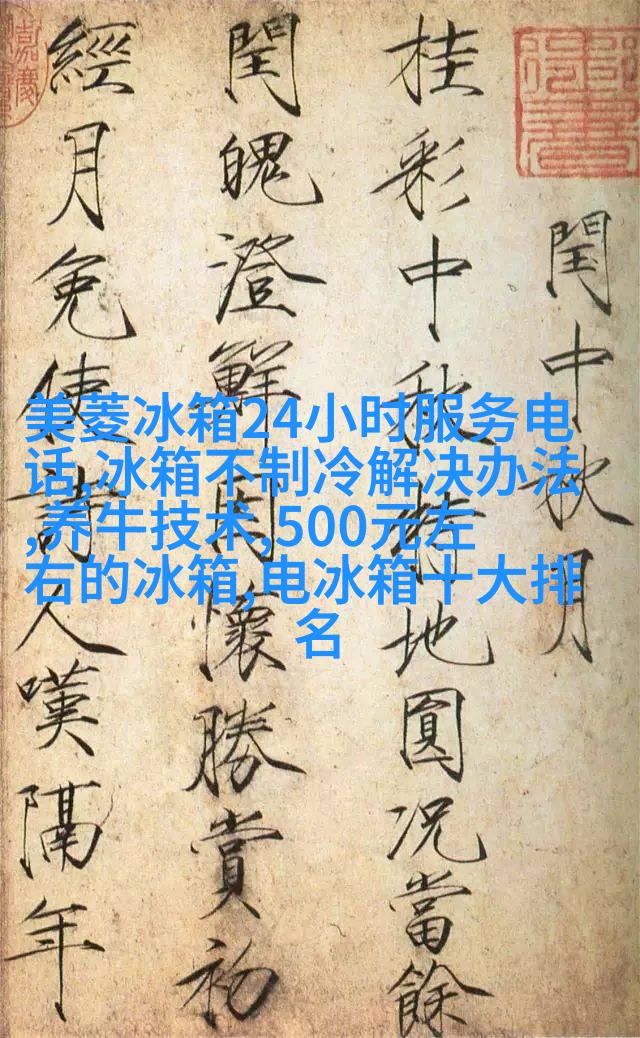 閏中秋月
桂彩中秋特地圓況當餘
閏魄澄鮮因懷勝賞初
經月免使詩人嘆隔年
美菱冰箱24小时服务电
话,冰箱不制冷解决办法
,养牛技术,500元左
右的冰箱,电冰箱十大排
名